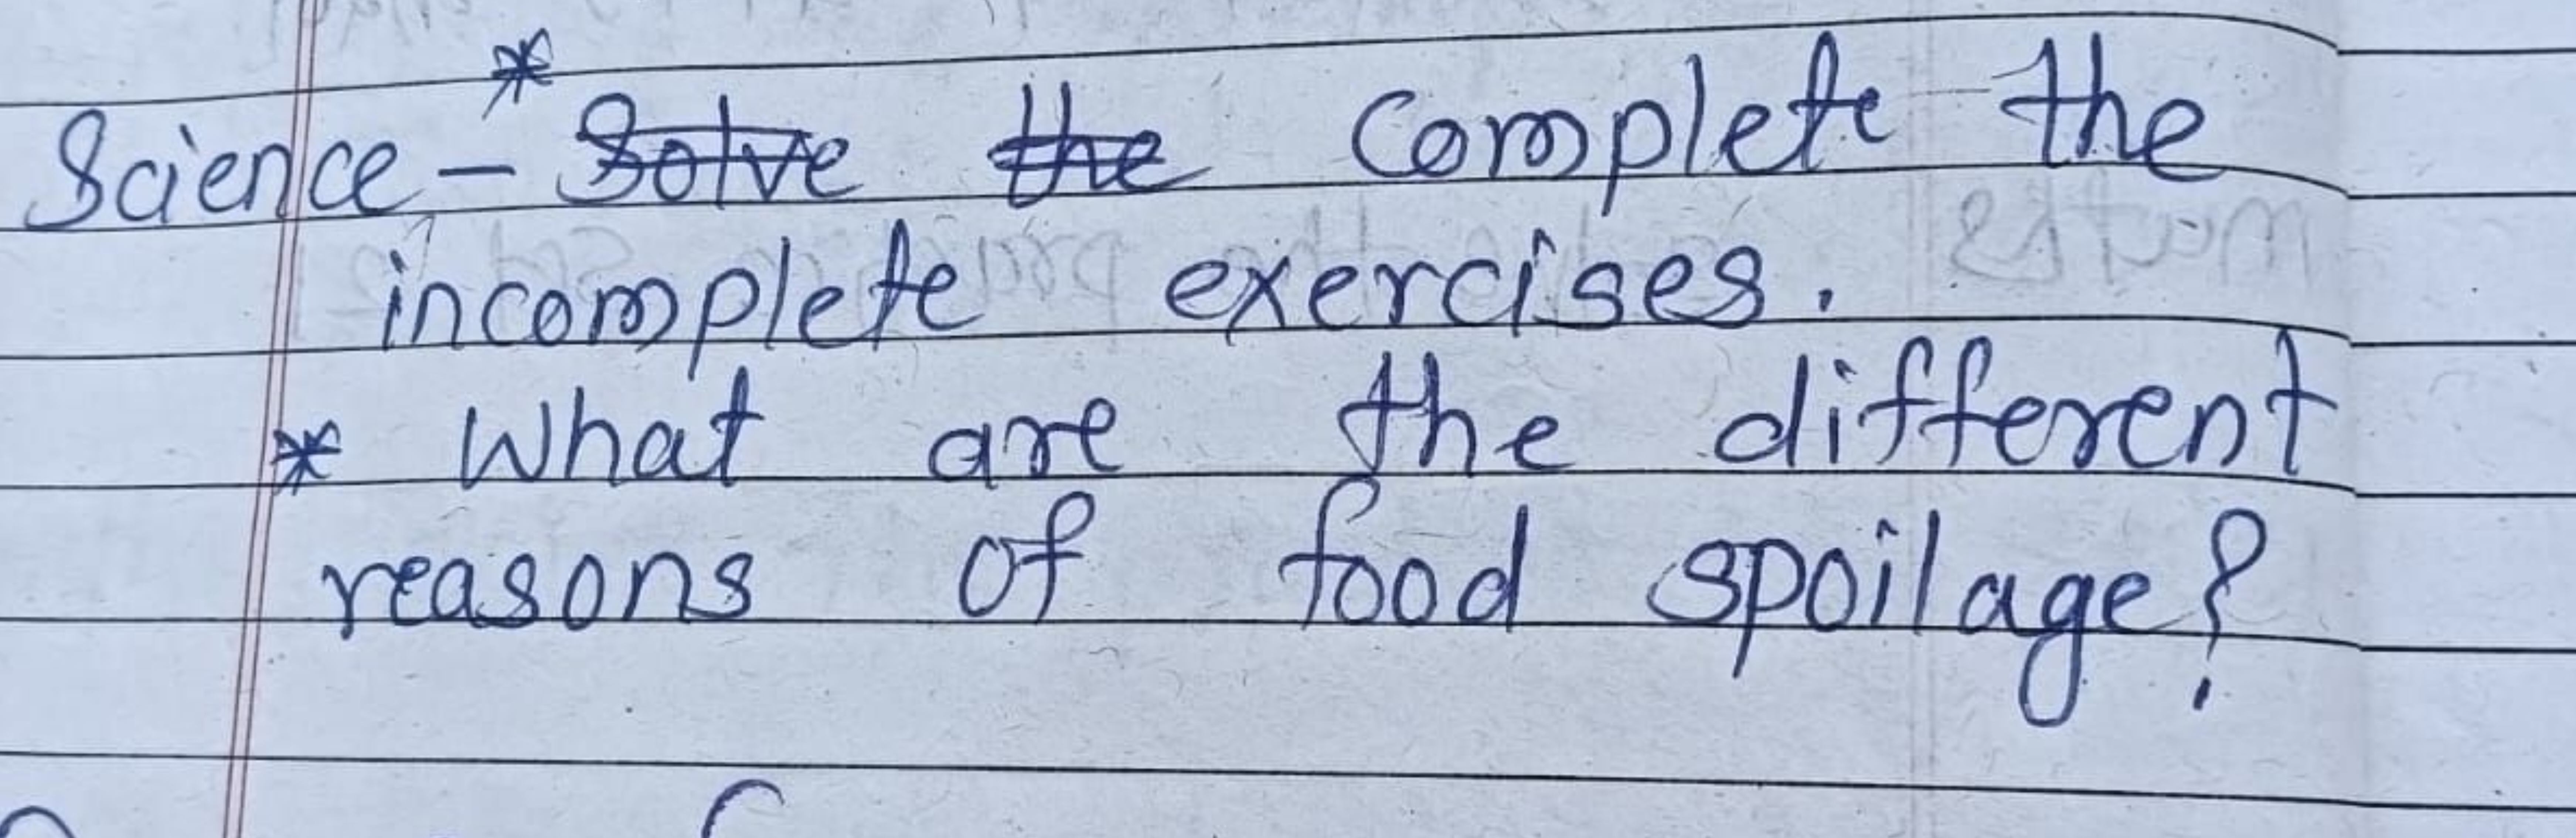 Science - * Solve the Complete the
incomplete exercises.
* What are the different
reasons of food spoilage?